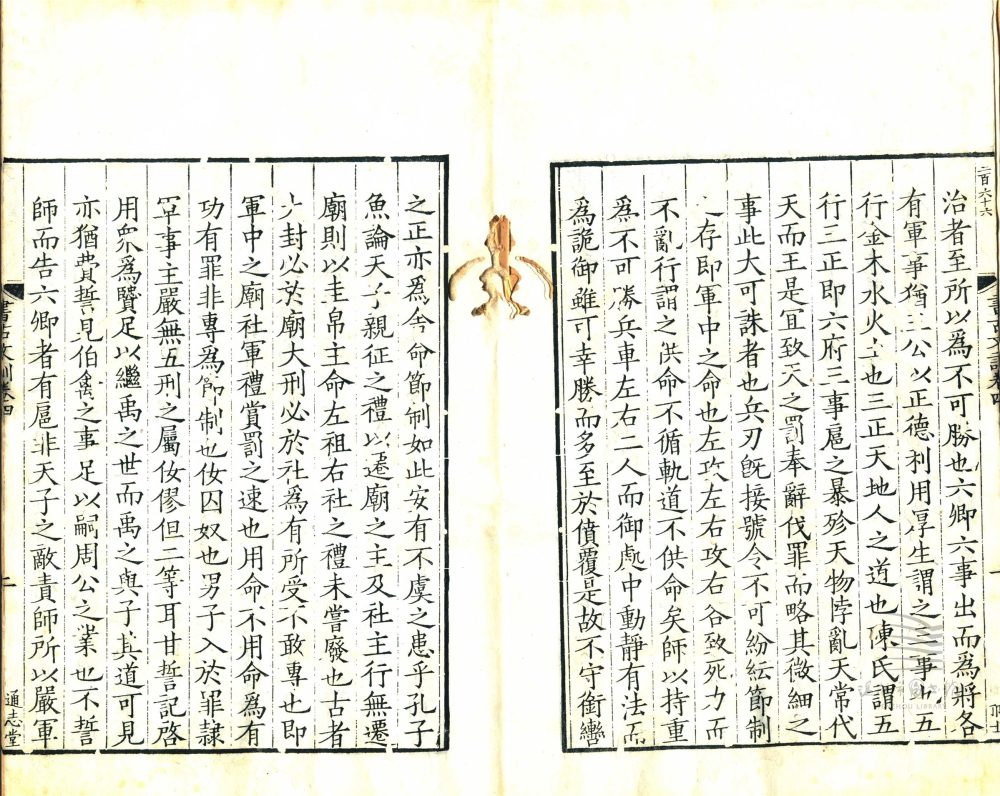 二百六十六
治者至所以爲不可勝也六卿六事出而爲將各
有軍事猶三公以正德利用厚生謂之三事也五
行金木水火土也三正天地人之道也陳氏謂五
行三正即六府三事扈之暴殄天物悖亂天常代
天而王是冝致天之罰奉辭伐罪而略其微細之
事此大可誅者也兵刃旣接號令不可紛紜節制
存即軍中之命也左攻左右攻右各致死力而
不亂行謂之供命不循軌道不供命矣師以持重
爲不可勝兵車左右二人而御處中動靜有法而
爲詭御雖可幸勝而多至於僨覆是故不守銜轡
之正亦爲命節制如此安有不虞之患乎孔子
魚論天子親征之禮以遷廟之主及社主行無遷
廟則以圭帛主命左祖右社之禮未嘗廢也古者
大封必於廟大刑必於社爲有所受不敢專也即
軍中之廟社軍禮賞罰之速也用命不用命爲有
功有罪非專爲節制也汝囚奴也男子入於罪隷
軍事主嚴無五刑之屬攸僇但二等耳甘誓記啓
用衆爲贒足以繼禹之世而禹之與子其道可見
亦猶費誓見伯禽之事足以嗣周公之業也不誓
師而告六卿者有扈非天子之敵責師所以嚴軍
書古文訓卷四
通志堂